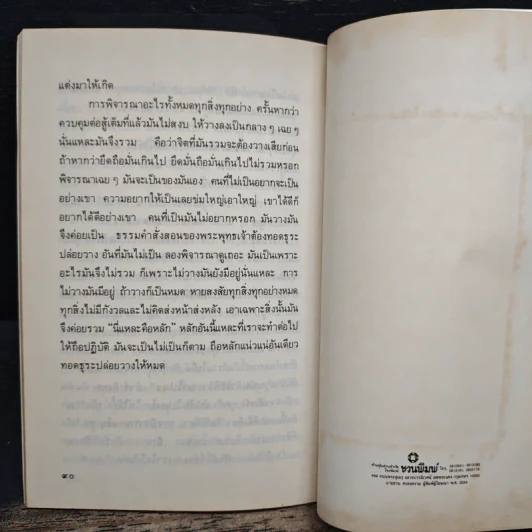 แต่งมาให้เกิด
การพิจารณาอะไรทั้งหมดทุกสิ่งทุกอย่าง ครั้นหากว่า
ควบคุมต่อสู้เต็มที่แล้วมันไม่สงบ ให้วางลงเป็นกลาง ๆ เฉย ๆ
นั่นแหละมันจึงรวม คือว่าจิตที่มันรวมจะต้องวางเสียก่อน
ถ้าหากว่ายึดถือมั่นเกินไป ยึดมั่นถือมั่นเกินไปไม่รวมหรอก
พิจารณาเฉย ๆ มันจะเป็นของมันเอง คนที่ไม่เป็นอยากจะเป็น
อย่างเขา ความอยากให้เป็นเลยข่มใหญ่เอาใหญ่ เขาได้ดีก็
อยากได้ดีอย่างเขา คนที่เป็นมันไม่อยากหรอก มันวางมัน
จึงค่อยเป็น ธรรมคำสั่งสอนของพระพุทธเจ้าต้องทอดธุระ
ปล่อยวาง อันที่มันไม่เป็น ลองพิจารณาดูเถอะ มันเป็นเพราะ
อะไรมันจึงไม่รวม ก็เพราะไม่วางมันยังมีอยู่นั่นแหละ การ
ไม่วางมันมีอยู่ ถ้าวางก็เป็นหมด หายสงสัยทุกสิ่งทุกอย่างหมด
ทุกสิ่งไม่มีกังวลและไม่คิดส่งหน้าส่งหลัง เอาเฉพาะสิ่งนั้นมัน
จึงค่อยรวม "นี่แหละคือหลัก" หลักอันนี้แหละที่เราจะทำต่อไป
ให้ถือปฏิบัติ มันจะเป็นไม่เป็นก็ตาม ถือหลักแน่วแน่อันเดียว
ทอดธุระปล่อยวางให้หมด
๙๐
ชวนพิมพ์